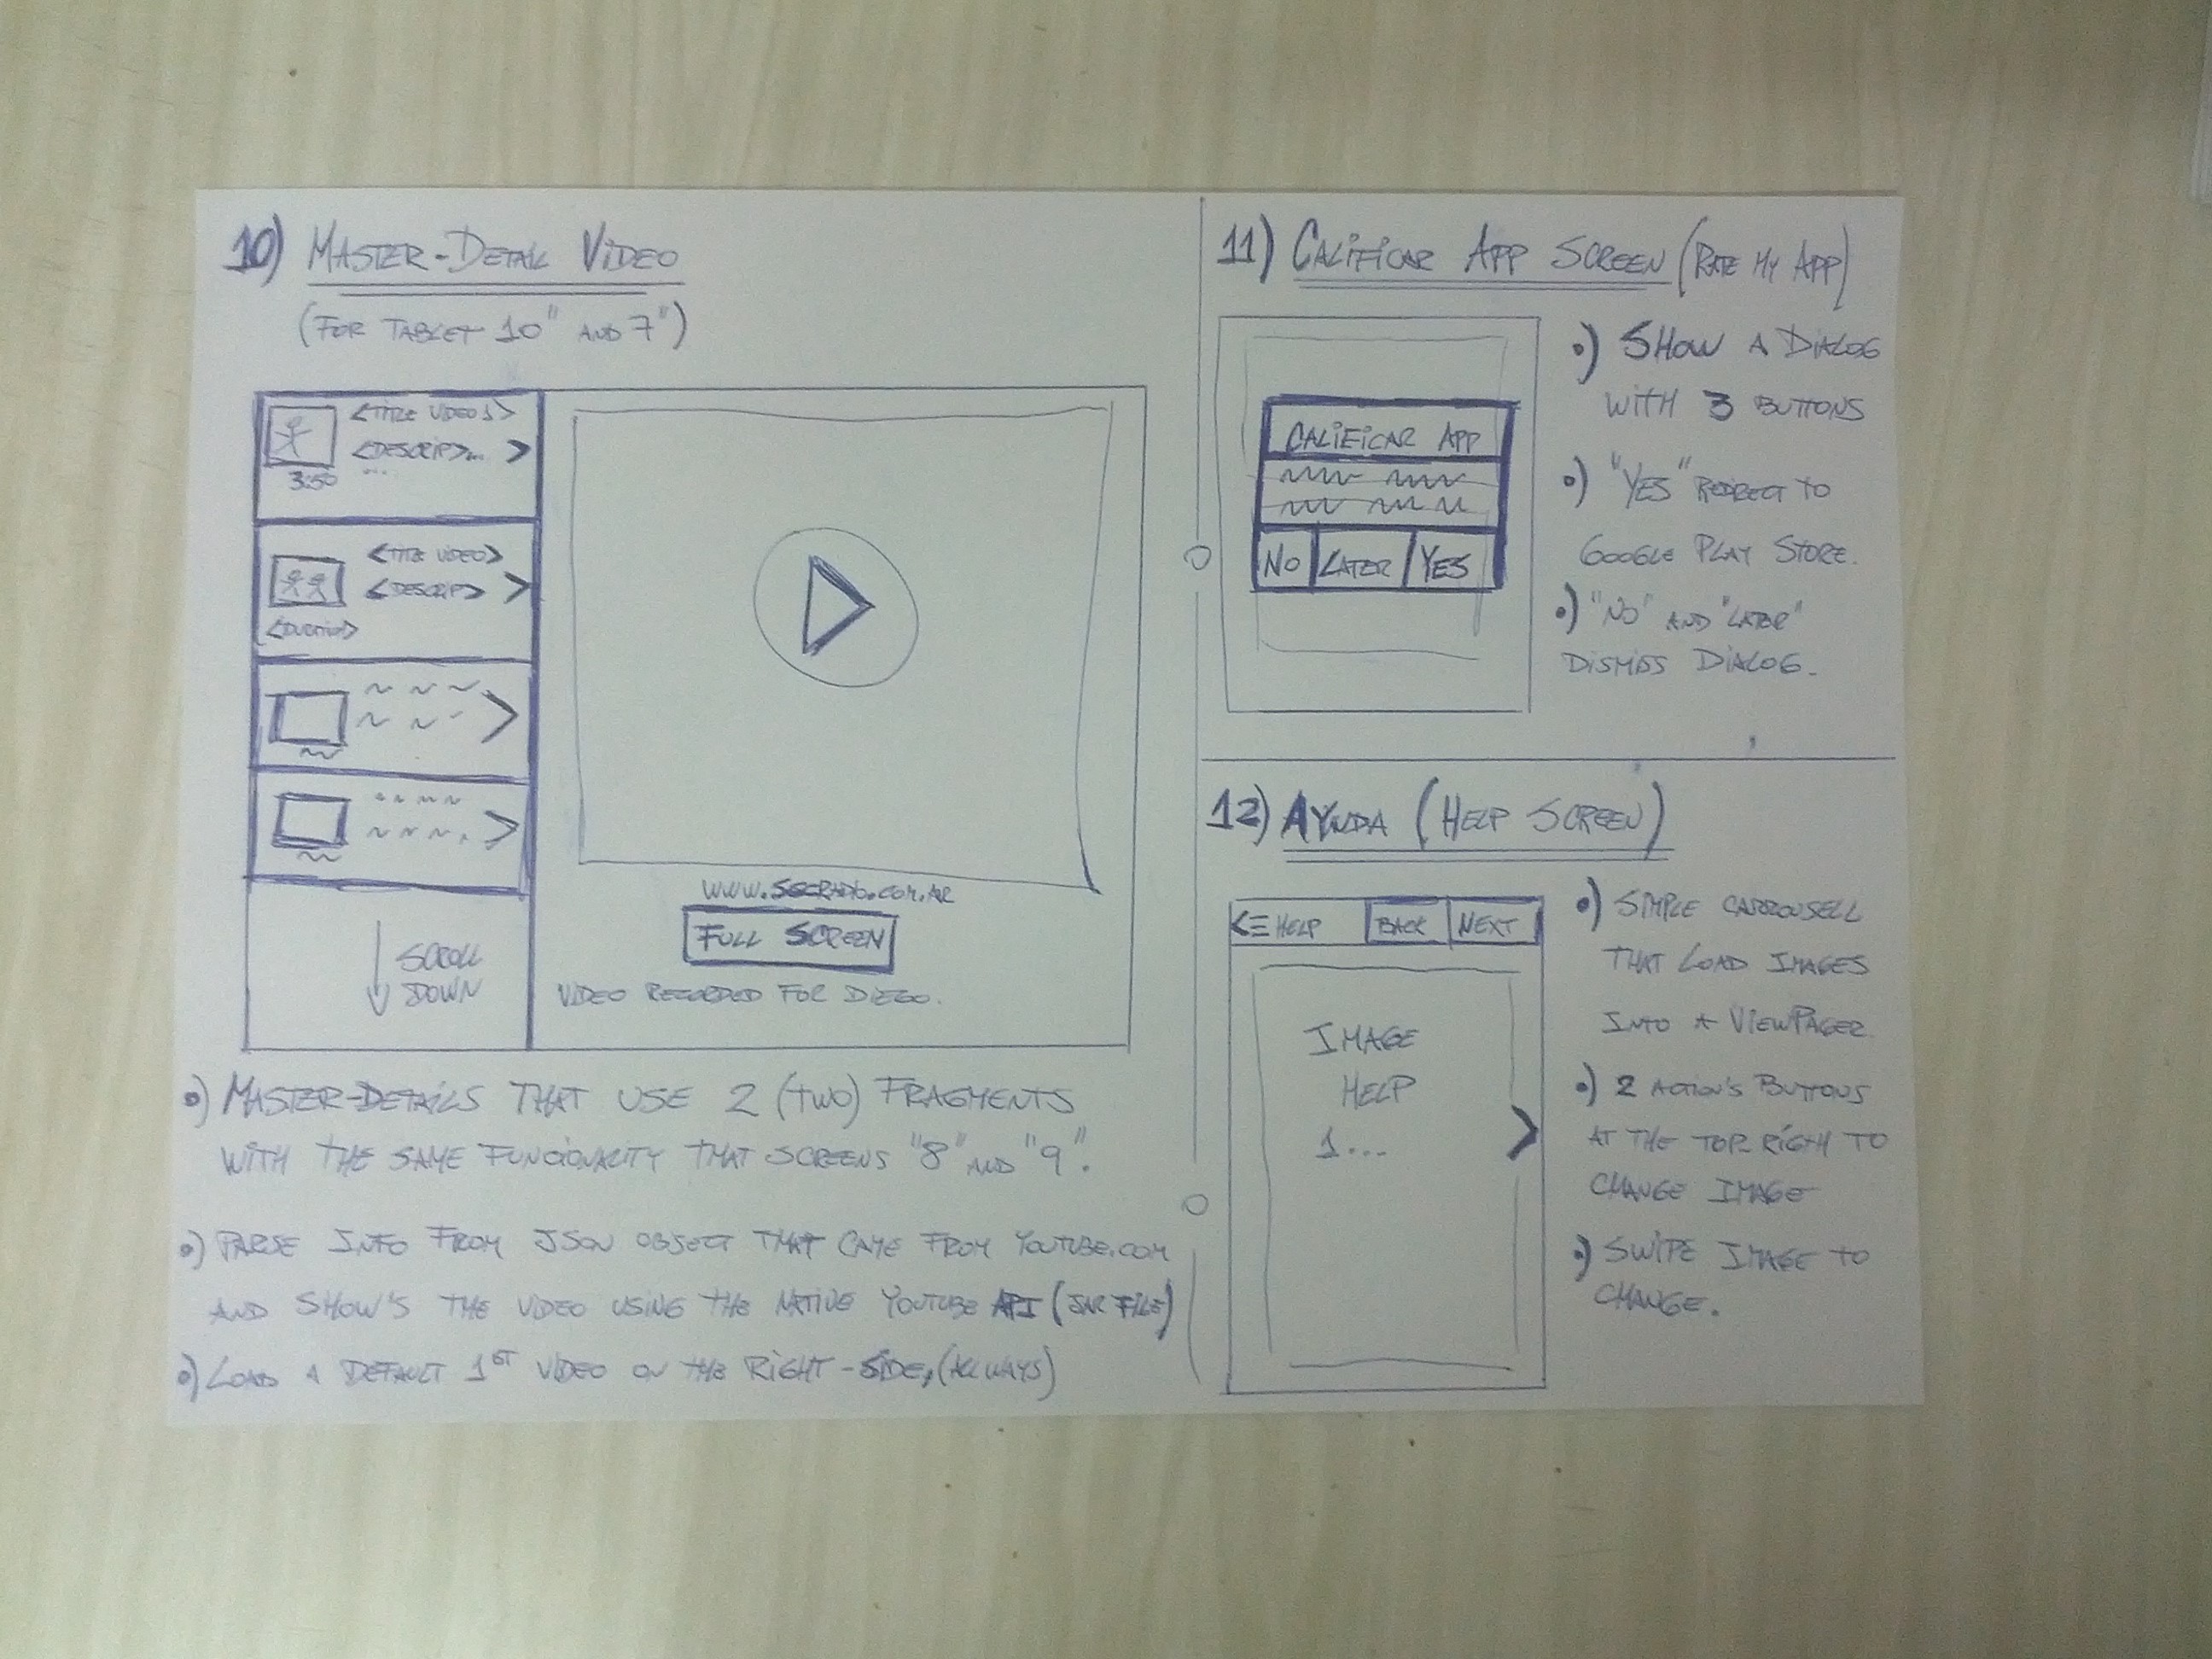 10) MASTER-DETAIL VIDEO
(FOR TABLET 10" AND 7")
<TITLE VIDEO 1>
<DESCRIP>... >
...
3:50
<TITLE VIDEO>
<DESCRIP> >
<DURATION>
SCROLL
DOWN
FULL SCREEN
VIDEO RECORDED FOR DIEGO.
•) MASTER-DETAILS THAT USE 2 (TWO) FRAGMENTS
WITH THE SAME FUNCIONALITY THAT SCREENS "8" AND "9".
•) PARSE INFO FROM JSON OBJECT THAT CAME FROM YOUTUBE.COM
AND SHOW'S THE VIDEO USING THE NATIVE YOUTUBE API (JAR FILE)
•) LOAD A DEFAULT 1ST VIDEO ON THE RIGHT-SIDE, (ALLWAYS)
11) CALIFICAR APP SCREEN (RATE MY APP)
CALIFICAR APP
NO LATER YES
•) SHOW A DIALOG
WITH 3 BUTTONS
•) "YES" REDIRECT TO
GOOGLE PLAY STORE.
•) "NO" AND "LATER"
DISMISS DIALOG.
12) AYUDA (HELP SCREEN)
HELP BACK NEXT
IMAGE
HELP
1...
•) SIMPLE CARROUSELL
THAT LOAD IMAGES
INTO A VIEWPAGER
•) 2 ACTION'S BUTTONS
AT THE TOP RIGHT TO
CHANGE IMAGE
•) SWIPE IMAGE TO
CHANGE.